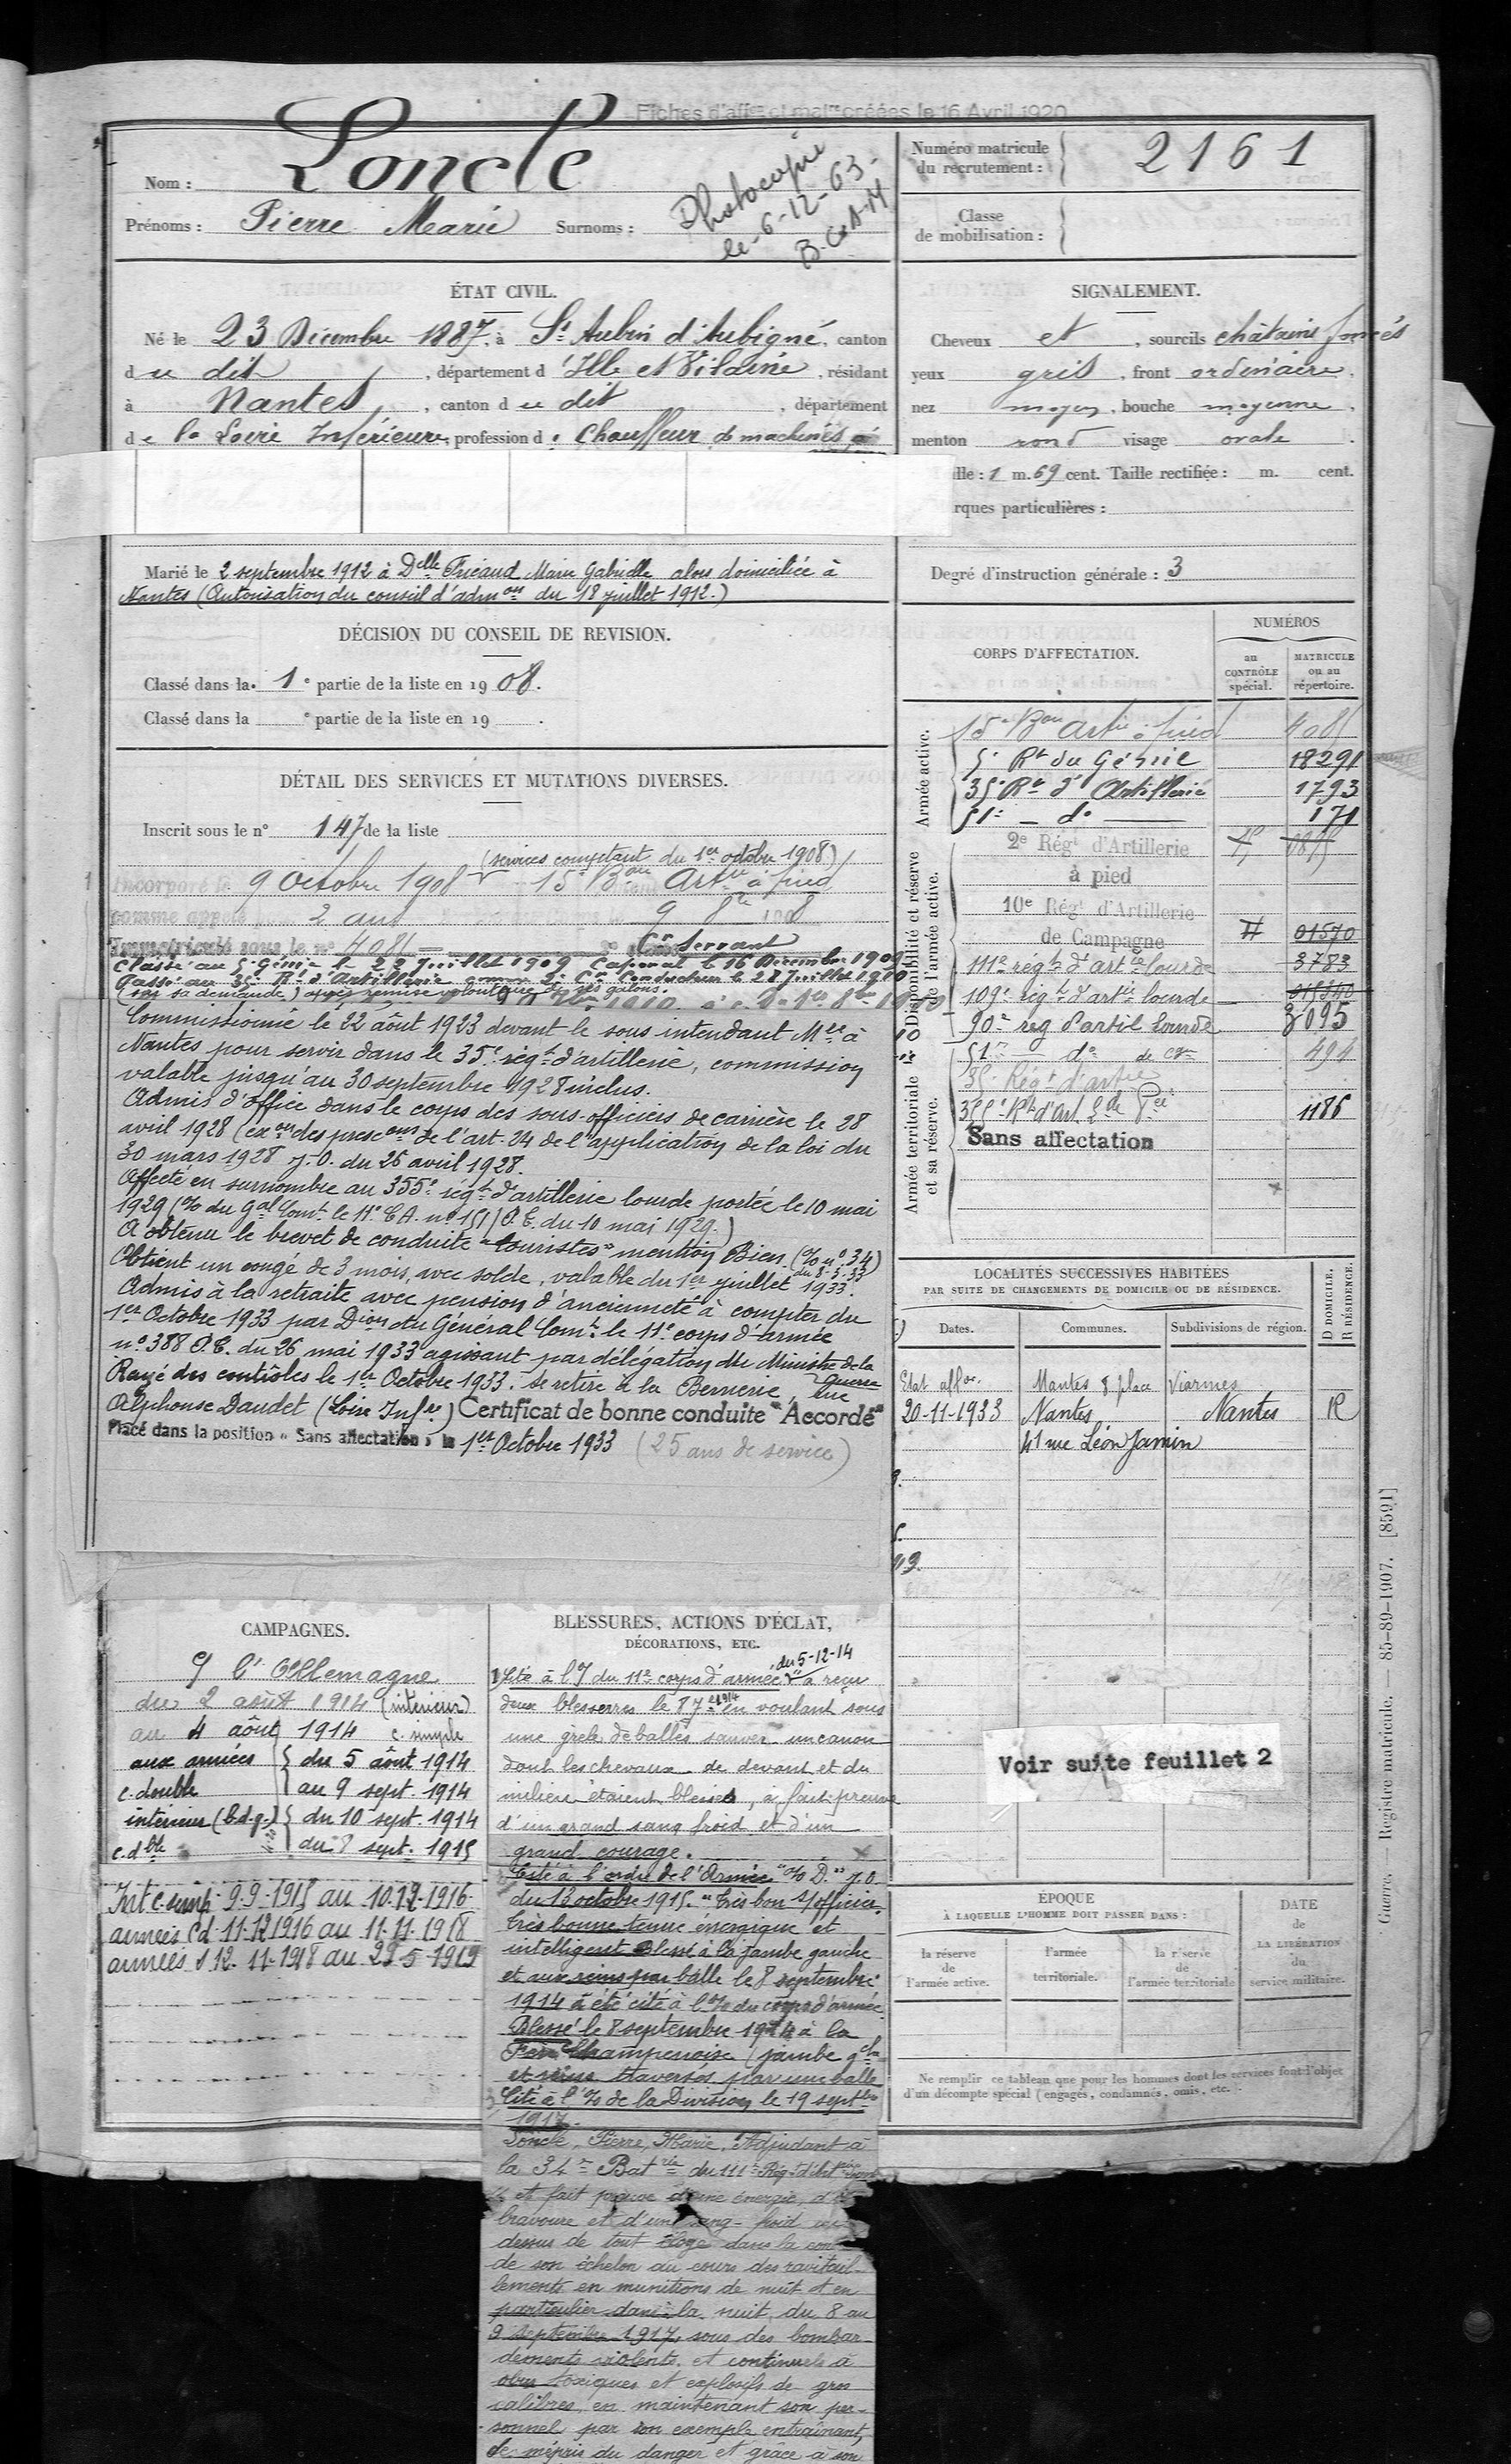 Fiches d'aff<sup>on</sup> et mat<sup>res</sup> créées le 16 Avril 1920
Nom : Loncle
Prénoms : Pierre Marie Surnoms :
Photocopie
le 6-12-63-
ÉTAT CIVIL.
Né le 23 Décembre 1887, à St Aubin d'Aubigné, canton
du dit, département d'Ille et Vilaine, résidant
à Nantes, canton du dit, département
de la Loire Inférieure, profession de Chauffeur de machines à
Marié le 2 septembre 1912 à Delle Fricaud Marie Gabrielle alors domiciliée à
Nantes (Autorisation du conseil d'admon du 18 juillet 1912.)
DÉCISION DU CONSEIL DE REVISION.
Classé dans la 1e partie de la liste en 1908.
Classé dans la e partie de la liste en 19 .
DÉTAIL DES SERVICES ET MUTATIONS DIVERSES.
Inscrit sous le n° 147 de la liste
(services comptant du 1er octobre 1908)
Incorporé le 9 Octobre 1908 15e Bon Artie à pied
comme appelé 2 ans 9 8bre 1908
Immatriculé sous le n° 4081 Cr Servant
Classé au 5e Génie le 22 Juillet 1909 Caporal le 16 Décembre 1909
Passé au 35e Rt d'Artillerie comme 2e Cr Conducteur le 27 Juillet 1910
(sur sa demande) après remise volontaire de ses galons.
Commissionné le 22 août 1923 devant le sous intendant Mre à
Nantes pour servir dans le 35e régt d'artillerie, commission
valable jusqu'au 30 septembre 1928 inclus.
Admis d'office dans le corps des sous-officiers de carrière le 28
avril 1928 (exon des presc ons de l'art. 24 de l'application de la loi du
30 mars 1928 J.O. du 26 avril 1928.
Affecté en surnombre au 355e régt d'artillerie lourde portée le 10 mai
1929 (% du Gal Comt le 11e C.A. n° 151/O.E. du 10 mai 1929.)
A obtenu le brevet de conduite "touristes" mention Bien (% n° 34 du 8-5-33)
Obtient un congé de 3 mois, avec solde, valable du 1er juillet 1933.
Admis à la retraite avec pension d'ancienneté à compter du
1er Octobre 1933 par Dion du Général Comt le 11e corps d'armée
n° 388 O.E. du 26 mai 1933 agissant par délégation du Ministre de la Guerre
Rayé des contrôles le 1er Octobre 1933. Se retire à la Bernerie, rue
Alphonse Daudet (Loire Infre) Certificat de bonne conduite "Accordé"
Placé dans la position « Sans affectation » le 1er Octobre 1933 (25 ans de service)
CAMPAGNES.
C/ l'Allemagne
du 2 août 1914 (intérieur)
au 4 août 1914 c. simple
aux armées du 5 août 1914
c. double au 9 sept. 1914
intérieur (b.d.g.) du 10 sept. 1914
c. dble du 8 sept. 1915
Int c. simp 9.9.1915 au 10.12.1916
armées Cd 11.12.1916 au 11.11.1918
armées S 12.11.1918 au 23-5-1919
BLESSURES, ACTIONS D'ÉCLAT,
DÉCORATIONS, ETC.
1) Cité à l'% du 11e corps d'armée du 5-12-14 "a reçu
deux blessures le 8 7bre 1914 en voulant sous
une grêle de balles sauver un canon
dont les chevaux de devant et du
milieu étaient blessés, a fait preuve
d'un grand sang froid et d'un
grand courage.
Cité à l'ordre de l'Armée "% D." J.O
du 13 octobre 1915. "Très bon s/officier,
très bonne tenue énergique et
intelligent Blessé à la jambe gauche
et aux reins par balle le 8 septembre
1914 a été cité à l'% du corps d'armée.
Blessé le 8 septembre 1914 à la
Fère Champenoise (jambe gche
et reins traversés par une balle
3 Cité à l'% de la Division le 19 septbre
1917.
Loncle, Pierre, Marie, Adjudant à
la 34e Batrie du 111e Régt d'Artrie lourde
a fait preuve d'une énergie, d'
bravoure et d'un sang-froid au
dessus de tout éloge dans la
de son échelon au cours des ravitail-
lements en munitions de nuit et en
particulier dans la nuit du 8 au
9 septembre 1917, sous des bombar-
dements violents et continuels à
obus toxiques et explosifs de gros
calibres, en maintenant son per-
sonnel par son exemple entraînant,
de mépris du danger et grâce à son
Numéro matricule
du recrutement : 2161
Classe
de mobilisation :
SIGNALEMENT.
Cheveux et, sourcils châtains foncés
yeux gris, front ordinaire,
nez moyen, bouche moyenne,
menton rond visage ovale.
ille : 1 m. 69 cent. Taille rectifiée : m. cent.
rques particulières :
Degré d'instruction générale : 3
CORPS D'AFFECTATION.
NUMÉROS
au CONTRÔLE spécial.
MATRICULE ou au répertoire.
Armée active.
15e Bon Artie à pied 4081
5e Rt du Génie 18291
35e Rt d'Artillerie 1793
51e — do — 171
Disponibilité et réserve
de l'armée active.
2e Régt d'Artillerie
à pied
10e Régt d'Artillerie
de Campagne 01570
111e régt d'artie lourde 3783
109e régt d'artie lourde 015340
90e reg d'artil Lourde 3095
Armée territoriale
et sa réserve.
51e — do de cgne 491
35e Régt d'artie
355e Rt d'Art Lde Pée 1186
Sans affectation
LOCALITÉS SUCCESSIVES HABITÉES
PAR SUITE DE CHANGEMENTS DE DOMICILE OU DE RÉSIDENCE.
D DOMICILE.
R RÉSIDENCE.
Dates. Communes. Subdivisions de région.
Etat affon. Nantes 8 place Viarmes
20-11-1933 Nantes Nantes R
41 rue Léon Jamin
Voir suite feuillet 2
ÉPOQUE
À LAQUELLE L'HOMME DOIT PASSER DANS :
la réserve de l'armée active.
l'armée territoriale.
la réserve de l'armée territoriale
DATE
de
LA LIBÉRATION
du
service militaire.
Ne remplir ce tableau que pour les hommes dont les services font l'objet
d'un décompte spécial (engagés, condamnés, omis, etc.).
Guerre. — Registre matricule. — 85-89-1907. [8591]